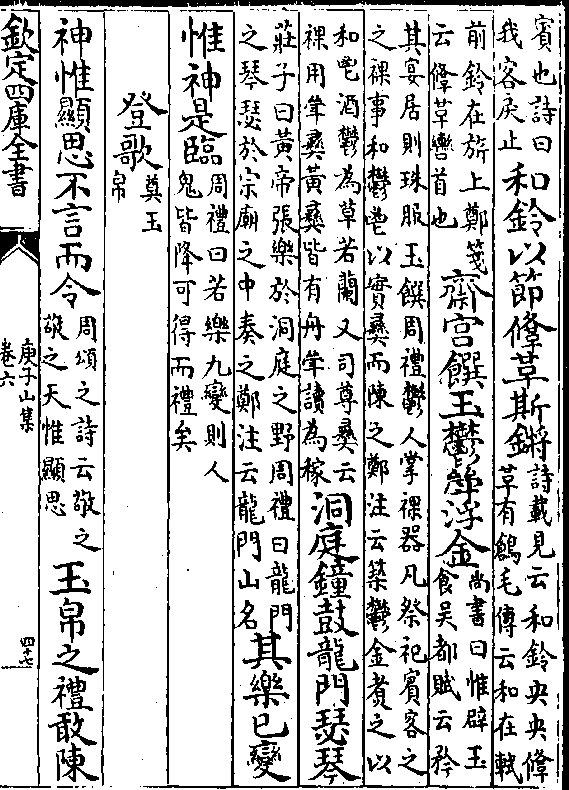 賓也詩曰
我客戾止
和鈴以節鞗革斯鏘
詩載見云和鈴央央鞗
革有鶬毛傳云和在軾
前鈴在旂上鄭箋
云鞗革轡首也
齋宫饌玉鬱斝浮金
尚書曰惟辟玉
食吳都賦云矜
其宴居則珠服玉饌周禮鬱人掌祼器凡祭祀賓客之
之祼事和鬱鬯以實彞而陳之鄭注云築鬱金煮之以
和鬯酒鬱為草若蘭又司尊彞云
祼用斝彞黄彞皆有舟斝讀為稼
洞庭鐘鼓龍門瑟琴
莊子曰黄帝張樂於洞庭之野周禮曰龍門
之琴瑟於宗廟之中奏之鄭注云龍門山名
其樂已變
惟神是臨
周禮曰若樂九變則人
鬼皆降可得而禮矣
登歌
奠玉
帛
神惟顯思不言而令
周頌之詩云敬之
敬之天惟顯思
玉帛之禮敢陳
欽定四庫全書
庚子山集
卷六
四十七